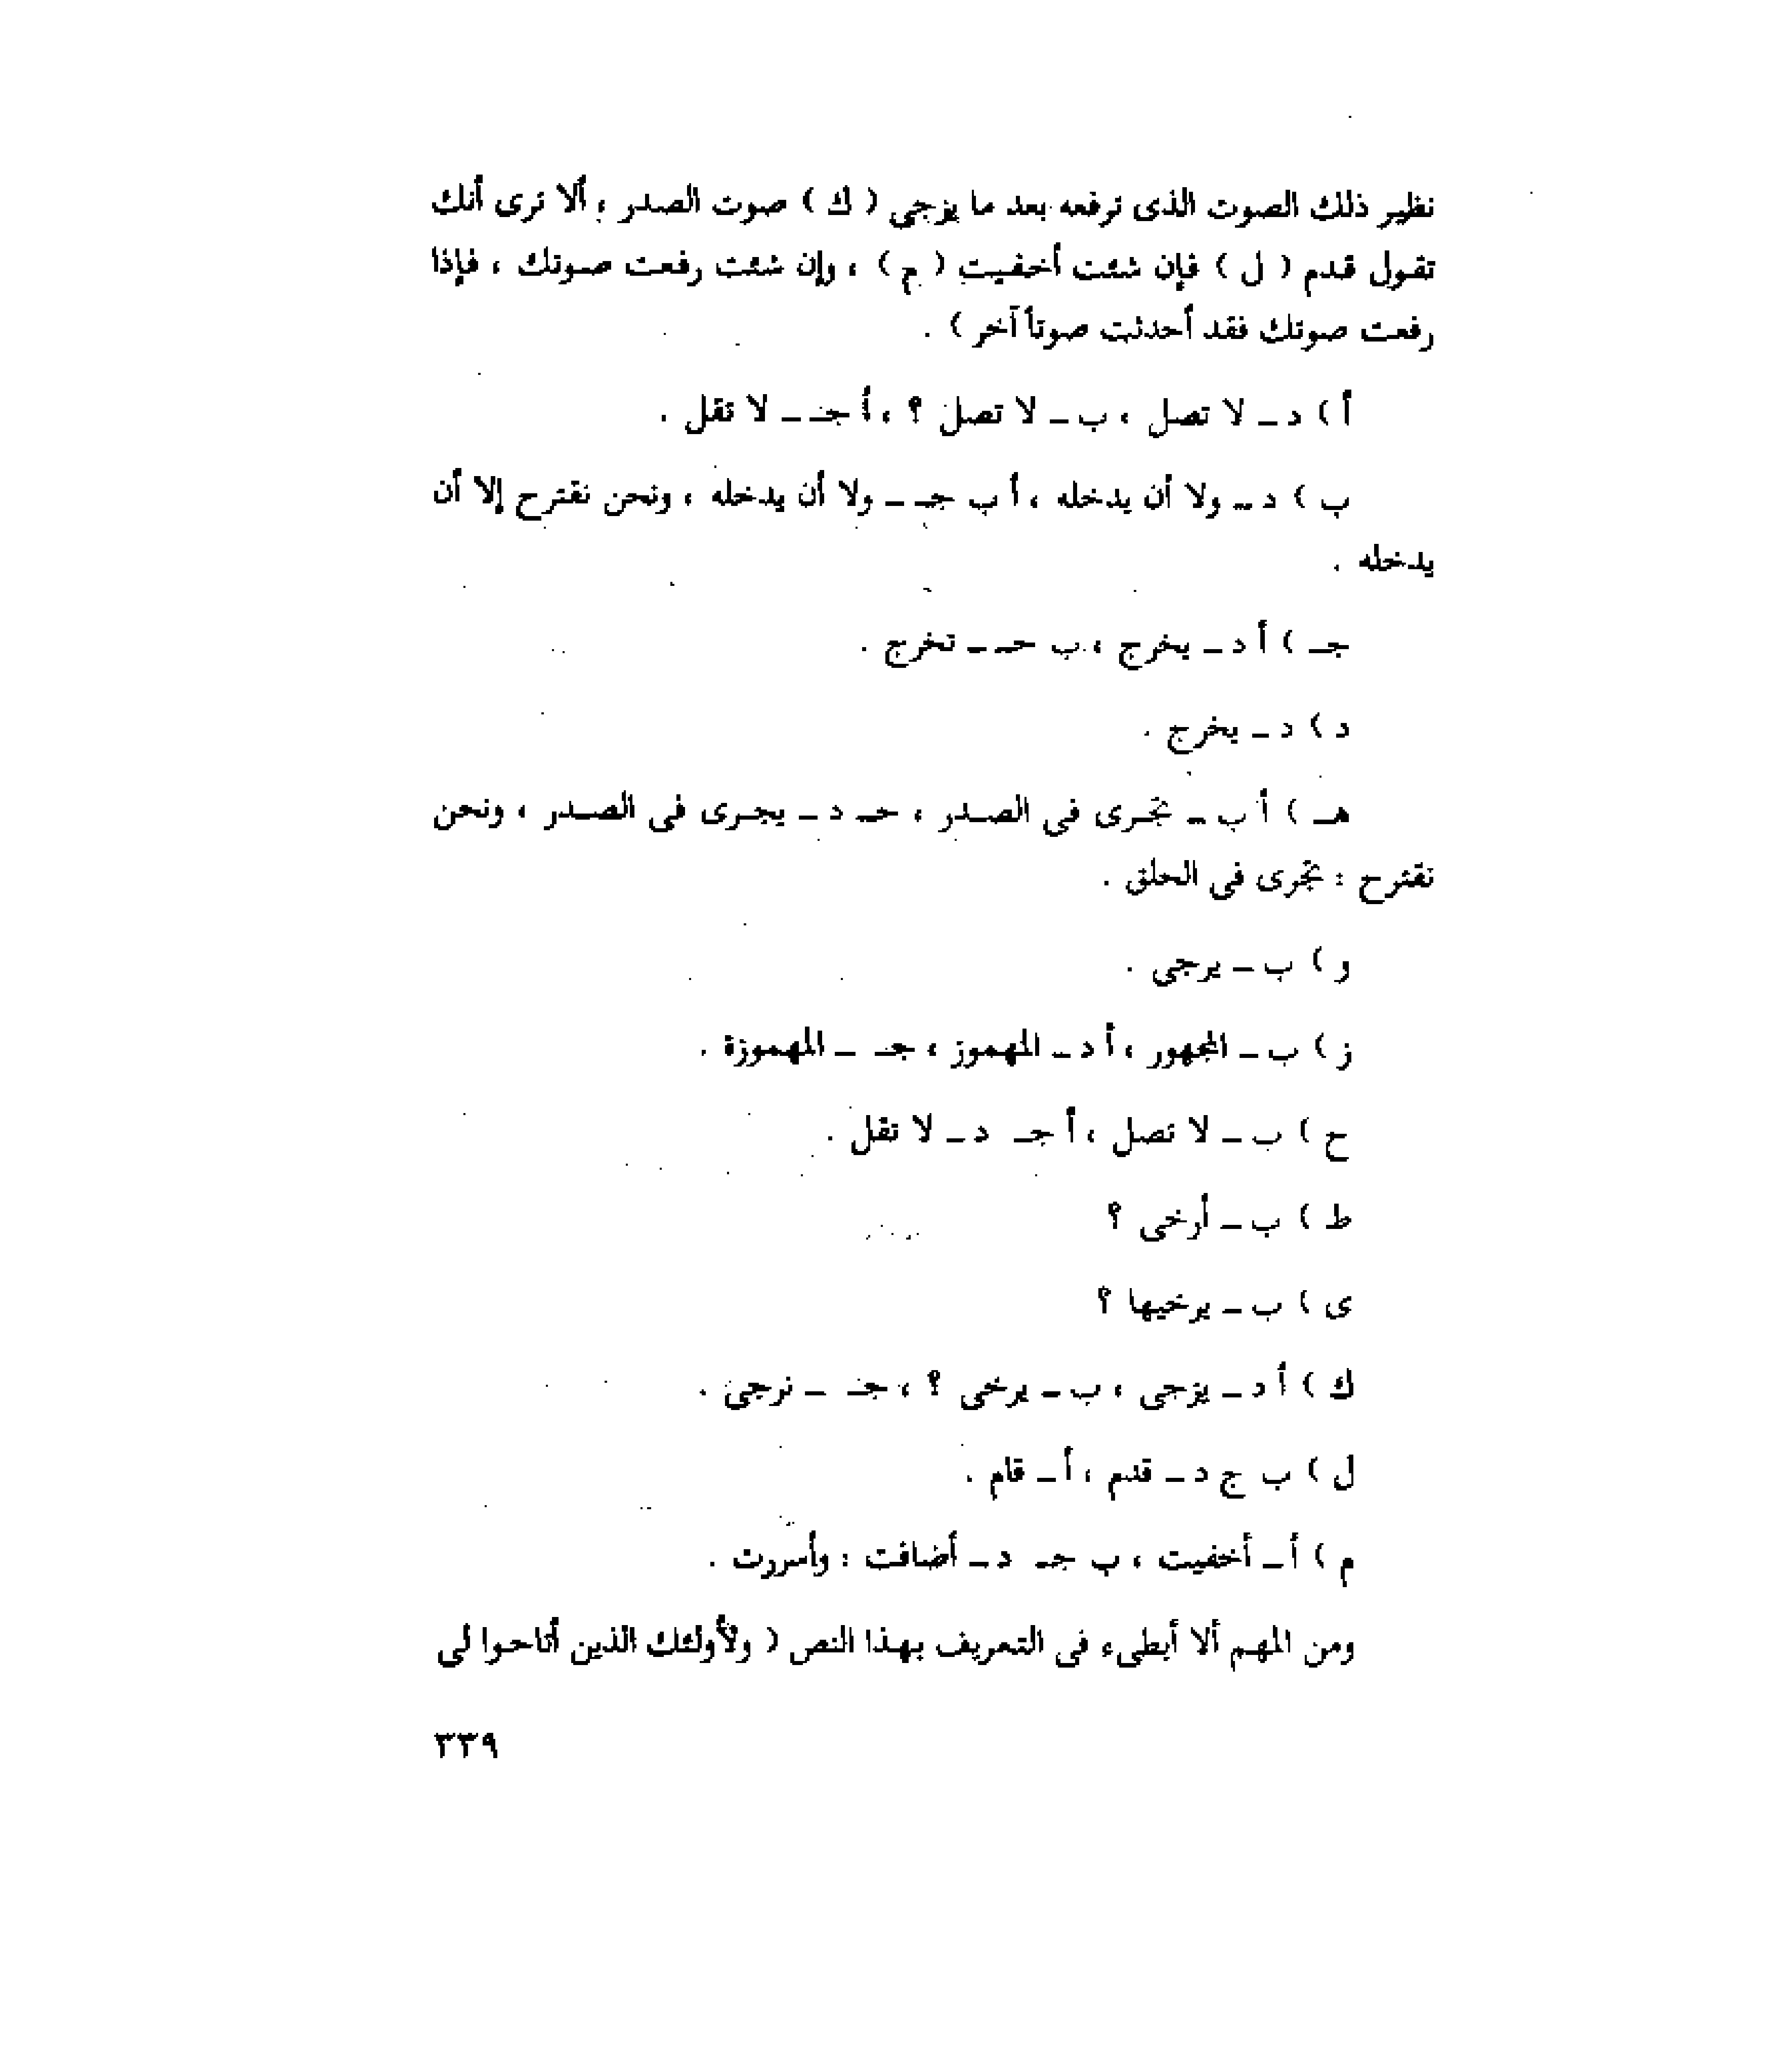 نظير ذلك الصوت الذى ترفعه بعد ما يزجى ( ك ) صوت الصدر ، ألا ترى أنك
تقول قدم ( ل ) فإن شئت أخفيت ( م ) ، وإن شئت رفعت صوتك ، فإذا
رفعت صوتك فقد أحدثت صوتاً آخر ) .
أ ) د ـ لا تصل ، ب ـ لا تصل ؟ ، أ جـ ـ لا تقل .
ب ) د ـ ولا أن يدخله ، أ ب جـ ـ ولا أن يدخله ، ونحن نقترح إلا أن
يدخله .
جـ ) أ د ـ يخرج ، ب حـ ـ تخرج .
د ) د ـ يخرج .
هـ ) أ ب ـ تجرى فى الصدر ، حـ د ـ يجرى فى الصدر ، ونحن
نقترح : تجرى فى الحلق .
و ) ب ـ يرجى .
ز ) ب ـ المجهور ، أ د ـ المهموز ، جـ ـ المهموزة .
ح ) ب ـ لا تصل ، أ جـ د ـ لا تقل .
ط ) ب ـ أرخى ؟
ى ) ب ـ يرخيها ؟
ك ) أ د ـ يزجى ، ب ـ يرخى ؟ ، جـ ـ نرجى .
ل ) ب ج د ـ قدم ، أ ـ قام .
م ) أ ـ أخفيت ، ب جـ د ـ أضافت : وأسررت .
ومن المهم ألا أبطىء فى التعريف بهذا النص ( ولأولئك الذين أتاحوا لى
٣٣٩